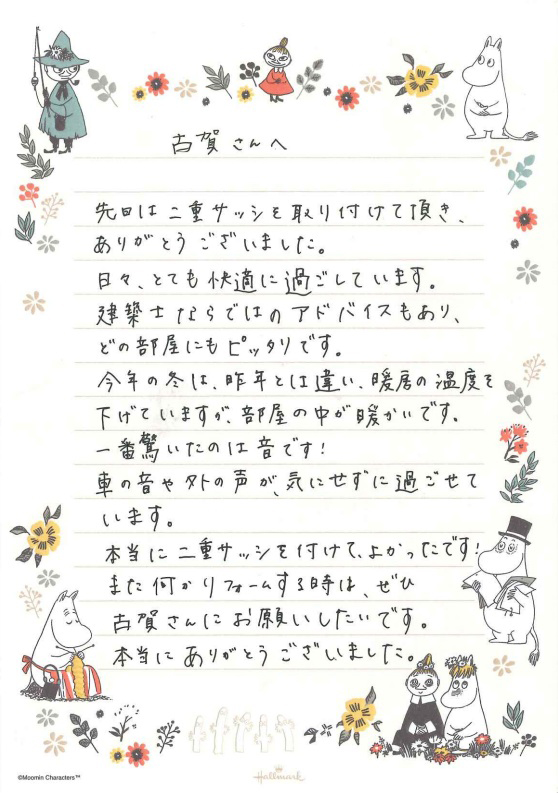 古賀さんへ
先日は二重サッシを取り付けて頂き、
ありがとうございました。
日々、とても快適に過ごしています。
建築士ならではのアドバイスもあり、
どの部屋にもピッタリです。
今年の冬は、昨年とは違い、暖房の温度を
下げていますが、部屋の中が暖かいです。
一番驚いたのは音です!
車の音や外の声が、気にせずに過ごせて
います。
本当に二重サッシを付けて、よかったです!
また何かリフォームする時は、ぜひ
古賀さんにお願いしたいです。
本当にありがとうございました。
©Moomin Characters™
Hallmark